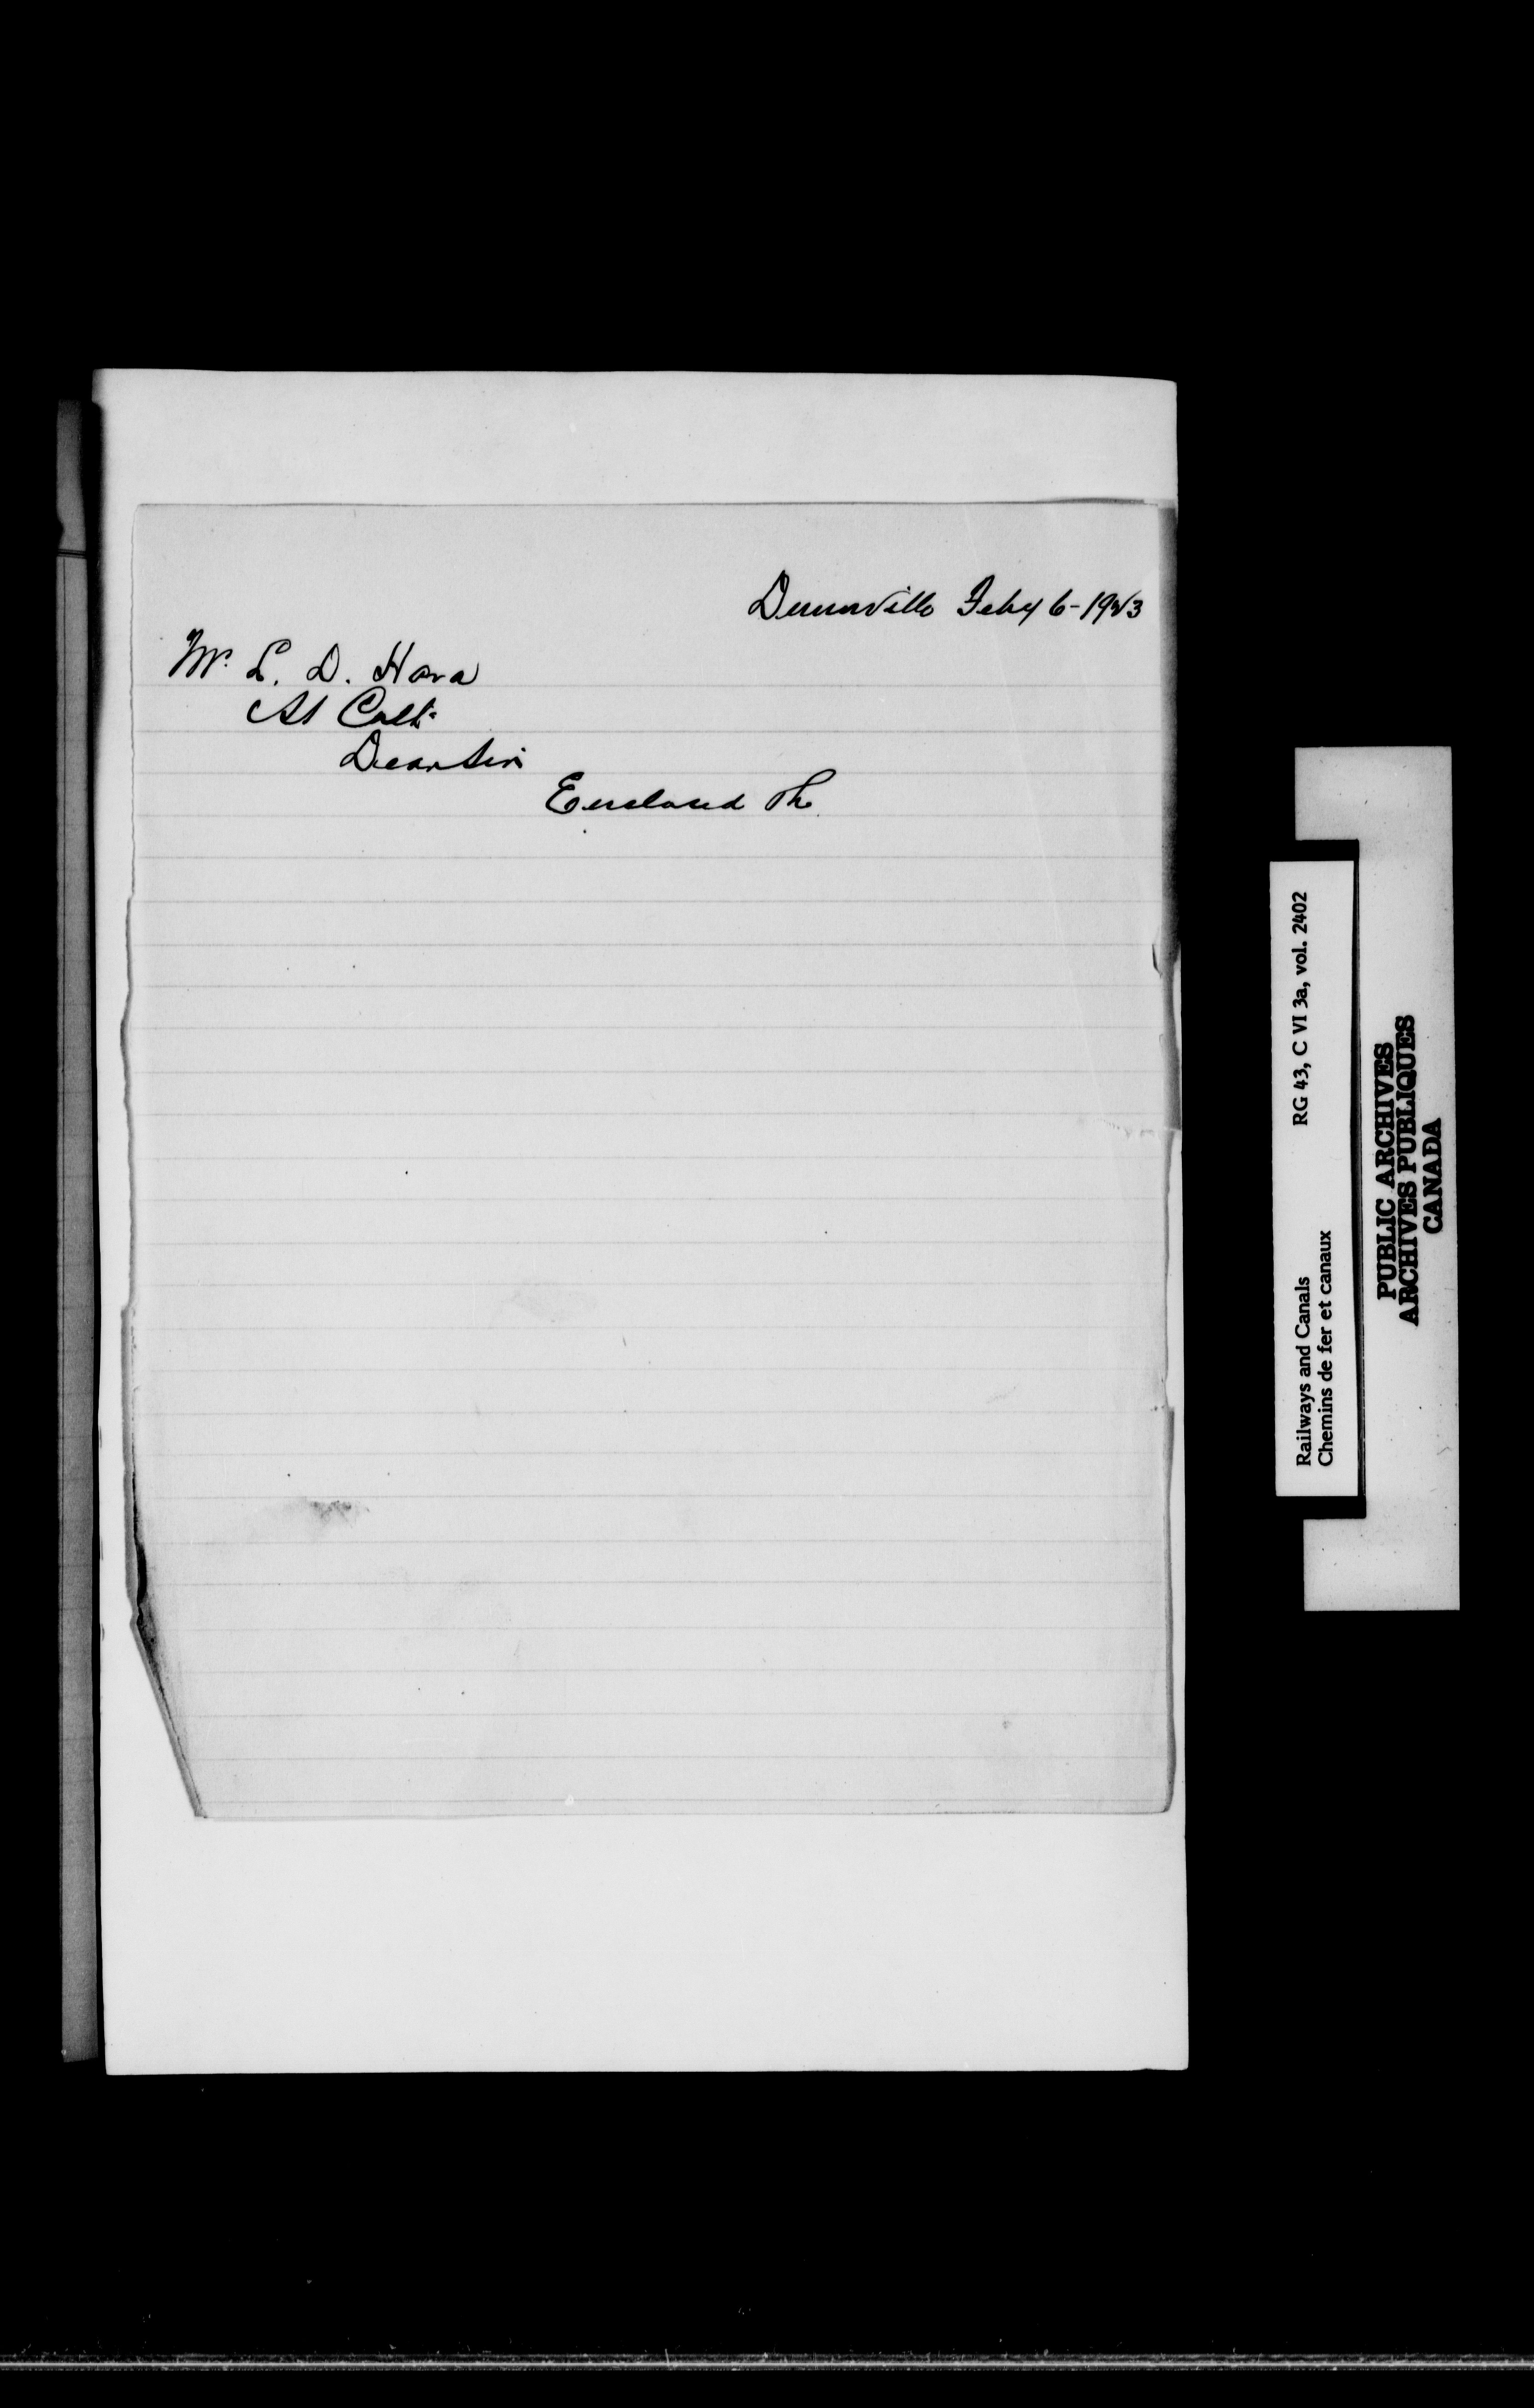 Dunnville Feby 6-1923
Mr. L. D. Hara
St Cath
Dear Sir
Enclosed The
Railways and Canals RG 43, C VI 3a, vol. 2402
Chemins de fer et canaux
PUBLIC ARCHIVES
ARCHIVES PUBLIQUES
CANADA